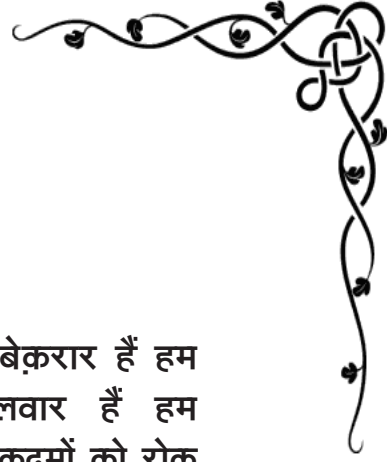 बेक़रार हैं हम
लवार हैं हम
क़दमों को रोक